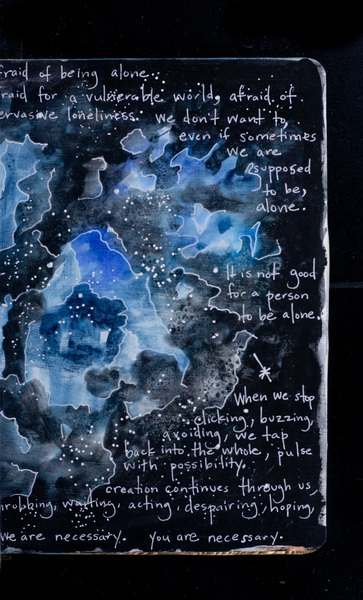 fraid of being alone.
fraid for a vulnerable world, afraid of
ervasive loneliness. we don't want to,
even if sometimes
we are
supposed
to be,
alone.
It is not good
for a person
to be alone.
When we stop
clicking, buzzing,
avoiding, we tap
back into the whole, pulse
with possibility.
creation continues through us,
hrobbing, waiting, acting, despairing, hoping,
we are necessary. you are necessary.